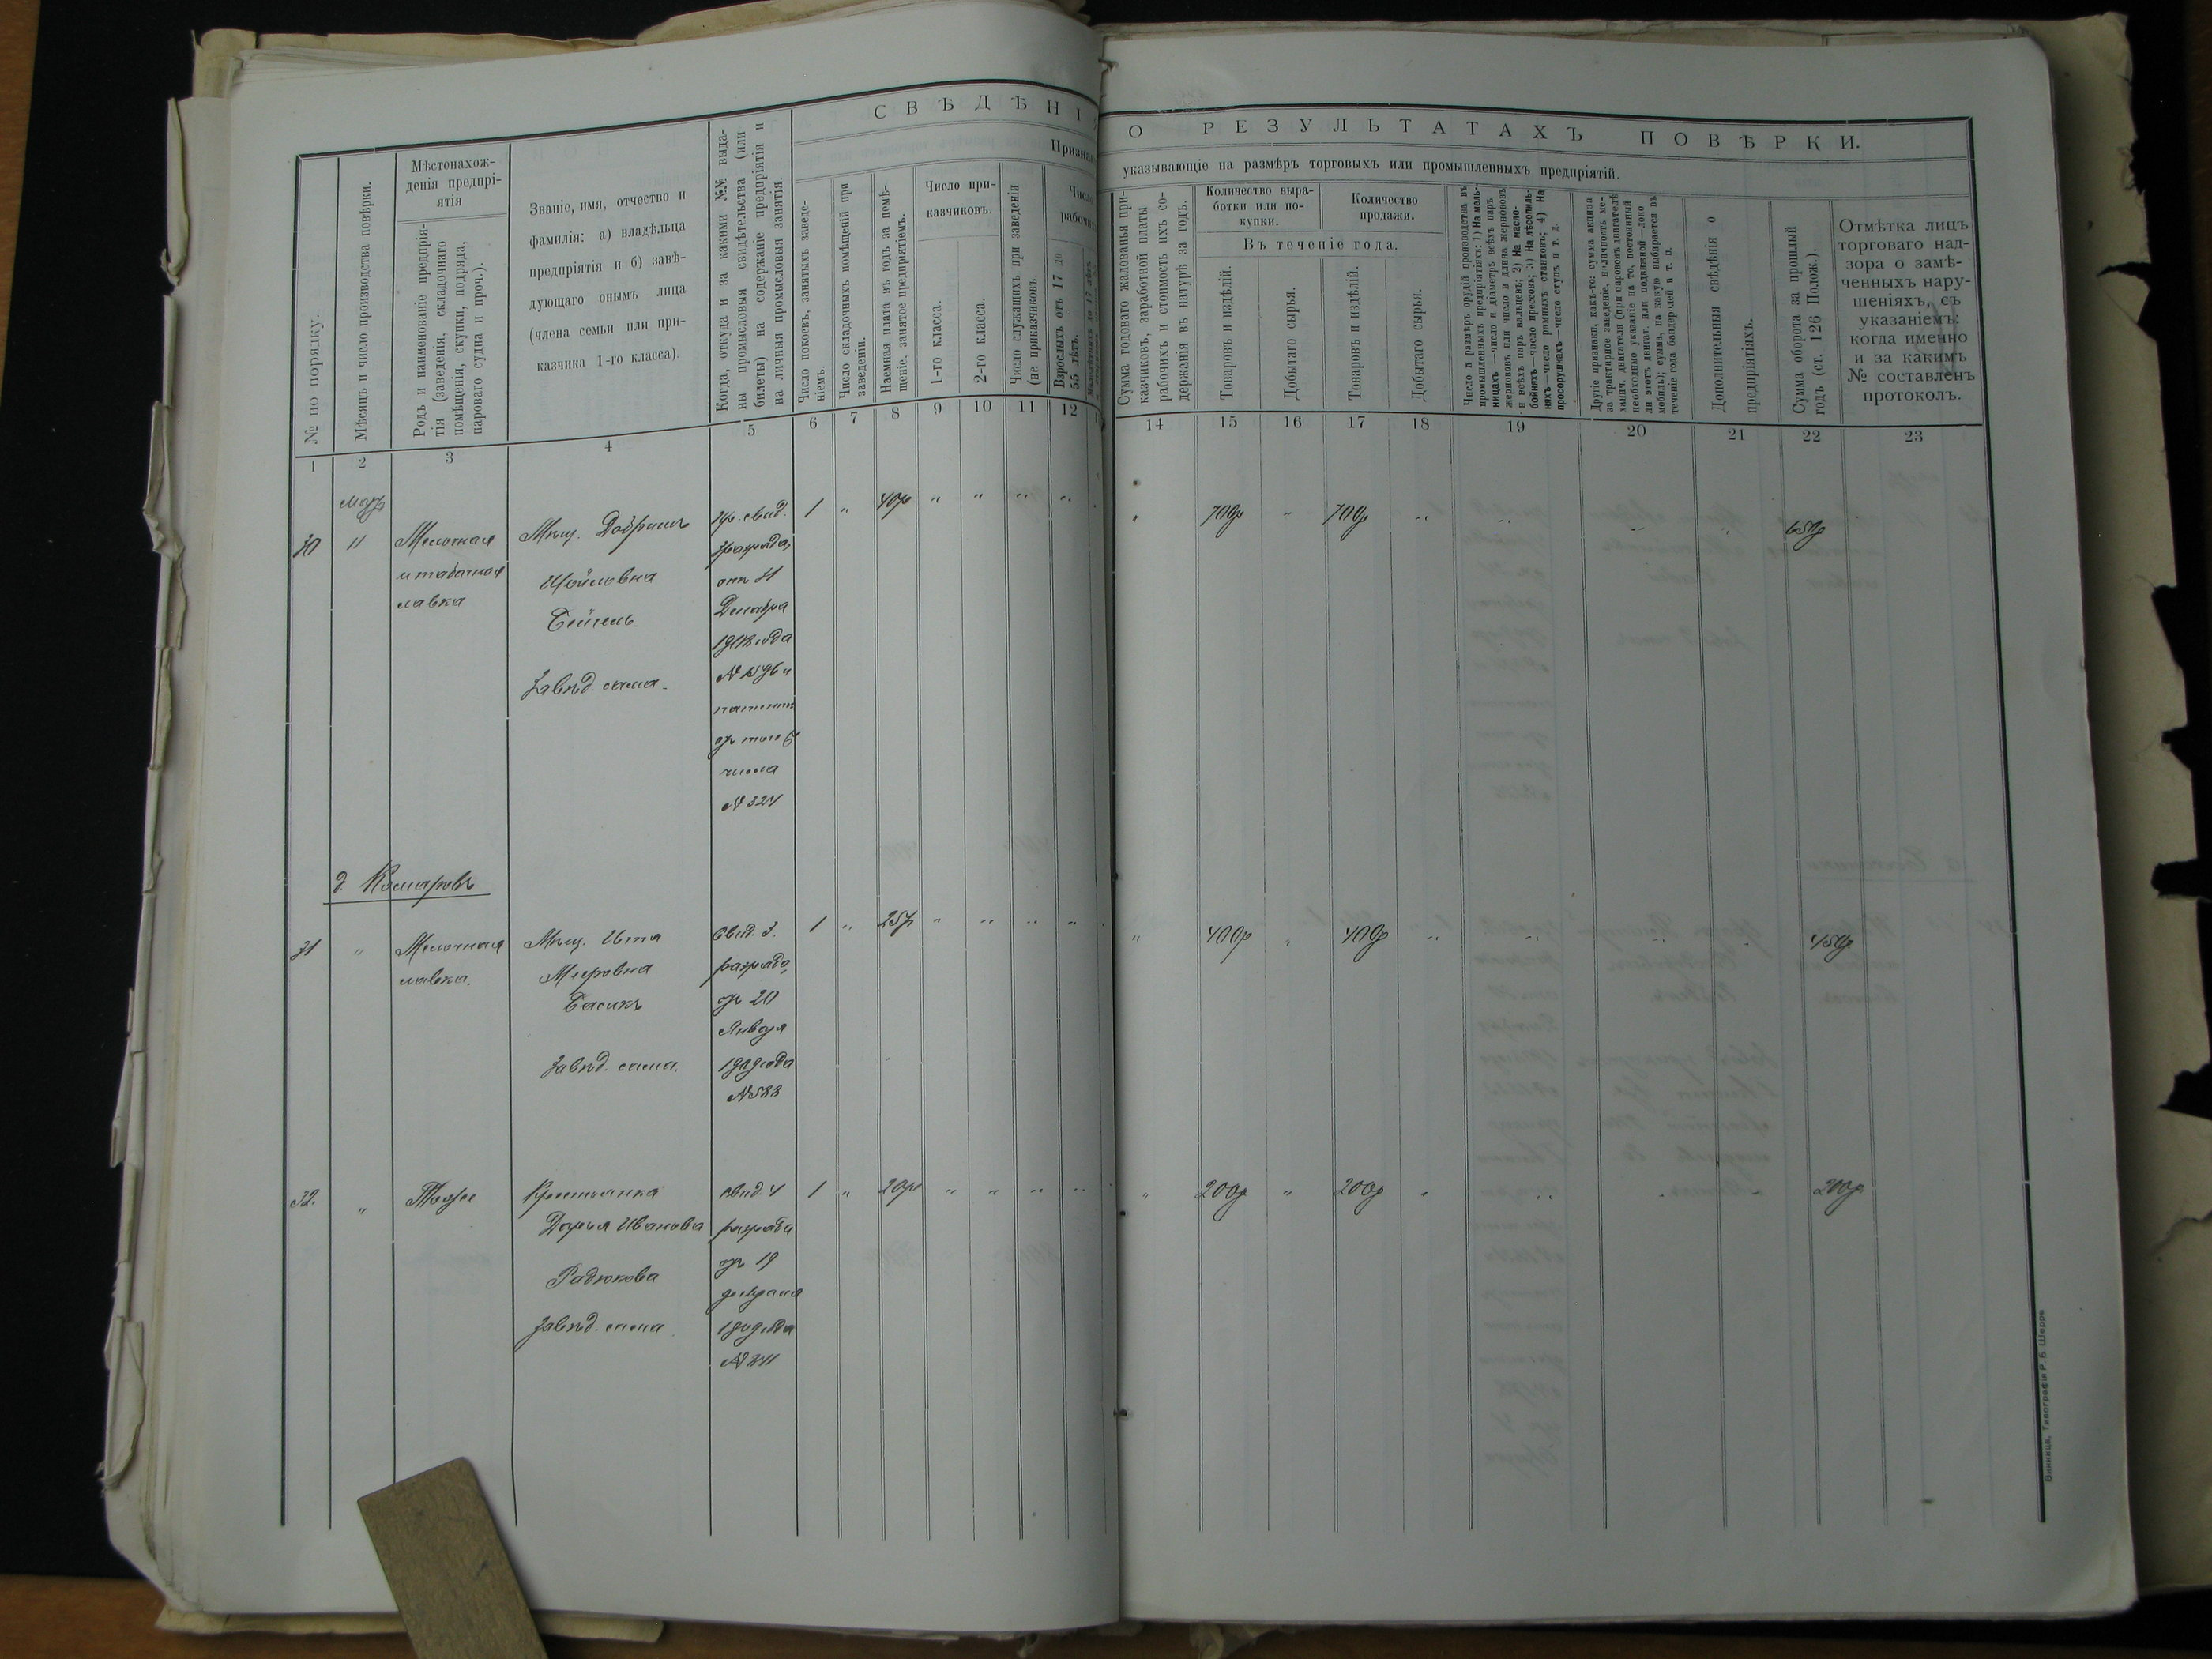 СВѢДѢНІЯ О РЕЗУЛЬТАТАХЪ ПОВѢРКИ.
указывающіе на размѣръ торговыхъ или промышленныхъ предпріятій.
№ по порядку.
Мѣсяцъ и число производства повѣрки.
Мѣстонахож-
денія предпрі-
ятія
Родъ и наименованіе предпрія-
тія (заведенія, складочнаго
помѣщенія, скупки, подряда,
пароваго судна и проч.).
Званіе, имя, отчество и
фамилія: а) владѣльца
предпріятія и б) завѣ-
дующаго онымъ лица
(члена семьи или при-
казчика 1-го класса).
Когда, откуда и за какими №№ выда-
ны промысловыя свидѣтельства (или
билеты) на содержаніе предпріятія и
на личныя промысловыя занятія.
Число покоевъ, занятыхъ заведе-
ніемъ.
Число складочныхъ помѣщеній при
заведеніи.
Наемная плата въ годъ за помѣ-
щеніе, занятое предпріятіемъ.
Число при-
казчиковъ.
1-го класса.
2-го класса.
Число служащихъ при заведеніи
(не приказчиковъ.
Взрослыхъ отъ 17 до
55 лѣтъ.
Сумма годоваго жалованья при-
казчиковъ, заработной платы
рабочихъ и стоимость ихъ со-
держанія въ натурѣ за годъ.
Количество выра-
ботки или по-
купки.
Количество
продажи.
Въ теченіе года.
Товаровъ и издѣлій.
Добытаго сырья.
Товаровъ и издѣлій.
Добытаго сырья.
Число и размѣръ орудій производства въ
промышленныхъ предпріятіяхъ: 1) На мель-
ницахъ—число и діаметръ всѣхъ паръ
жернововъ или число и длина жернововъ
и всѣхъ паръ вальцевъ; 2) На масло-
бойняхъ—число прессовъ; 3) На лѣсопиль-
няхъ—число рамныхъ станковъ; 4) На
просорушкахъ—число ступъ и т. д.
Другіе признаки, какъ-то: сумма акциза
за трактирное заведеніе, наличность ме-
ханич. двигателя (при паровомъ двигателѣ
необходимо указаніе на то, постоянный
ли этотъ двигат. или подвижной—локо
мобиль); сумма, на какую выбирается въ
теченіе года бандеролей и т. п.
Дополнительныя свѣдѣнія о
предпріятіяхъ.
Сумма оборота за прошлый
годъ (ст. 126 Полож.).
Отмѣтка лицъ
торговаго над-
зора о замѣ-
ченныхъ нару-
шеніяхъ, съ
указаніемъ:
когда именно
и за какимъ
№ составленъ
протоколъ.
1 2 3 4 5 6 7 8 9 10 11 12 14 15 16 17 18 19 20 21 22 23
30 11 Мелочная
и табачная
лавка
Мѣщ.
Завѣд. сама.
свид.
3 разряда,
отъ 31
Декабря
числа
№ 324
1 " 40р " " " " 700р " 700р " " " " 650р
д. Комаровъ
31 " Мелочная
лавка.
Мѣщ. Ита
Мееровна
Басикъ
Завѣд. сама.
Свид. 3.
разряда,
от 20
Января
1909 года
№ 588
1 " 25р " " " " " 400р " 400р " " " " 450р
32. " Тоже
Крестьянка
Дарья Иванова
Радюкова
Завѣд. сама
свид. 4
разряда
от 19
1909 года
1 " 20р " " " " " 200р " 200р " " 200р
Винница, Типографія Р. Б. Шерръ